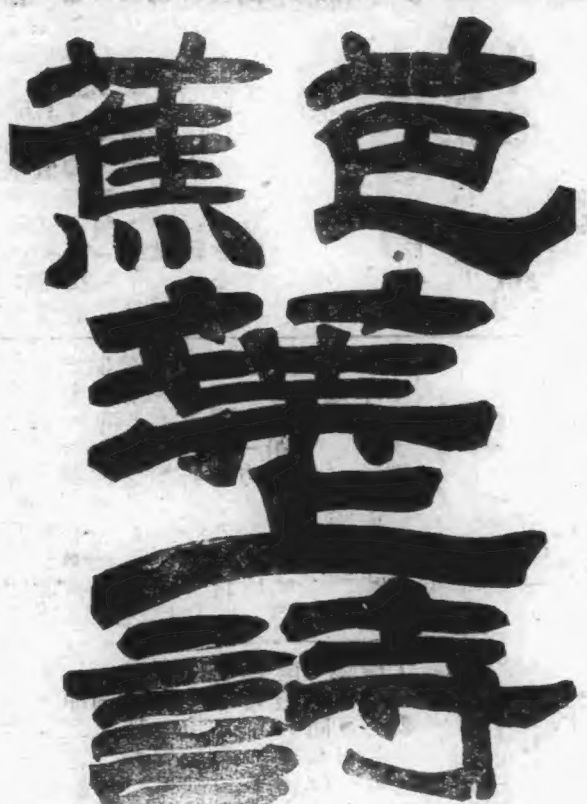 芭蕉
葉上
詩